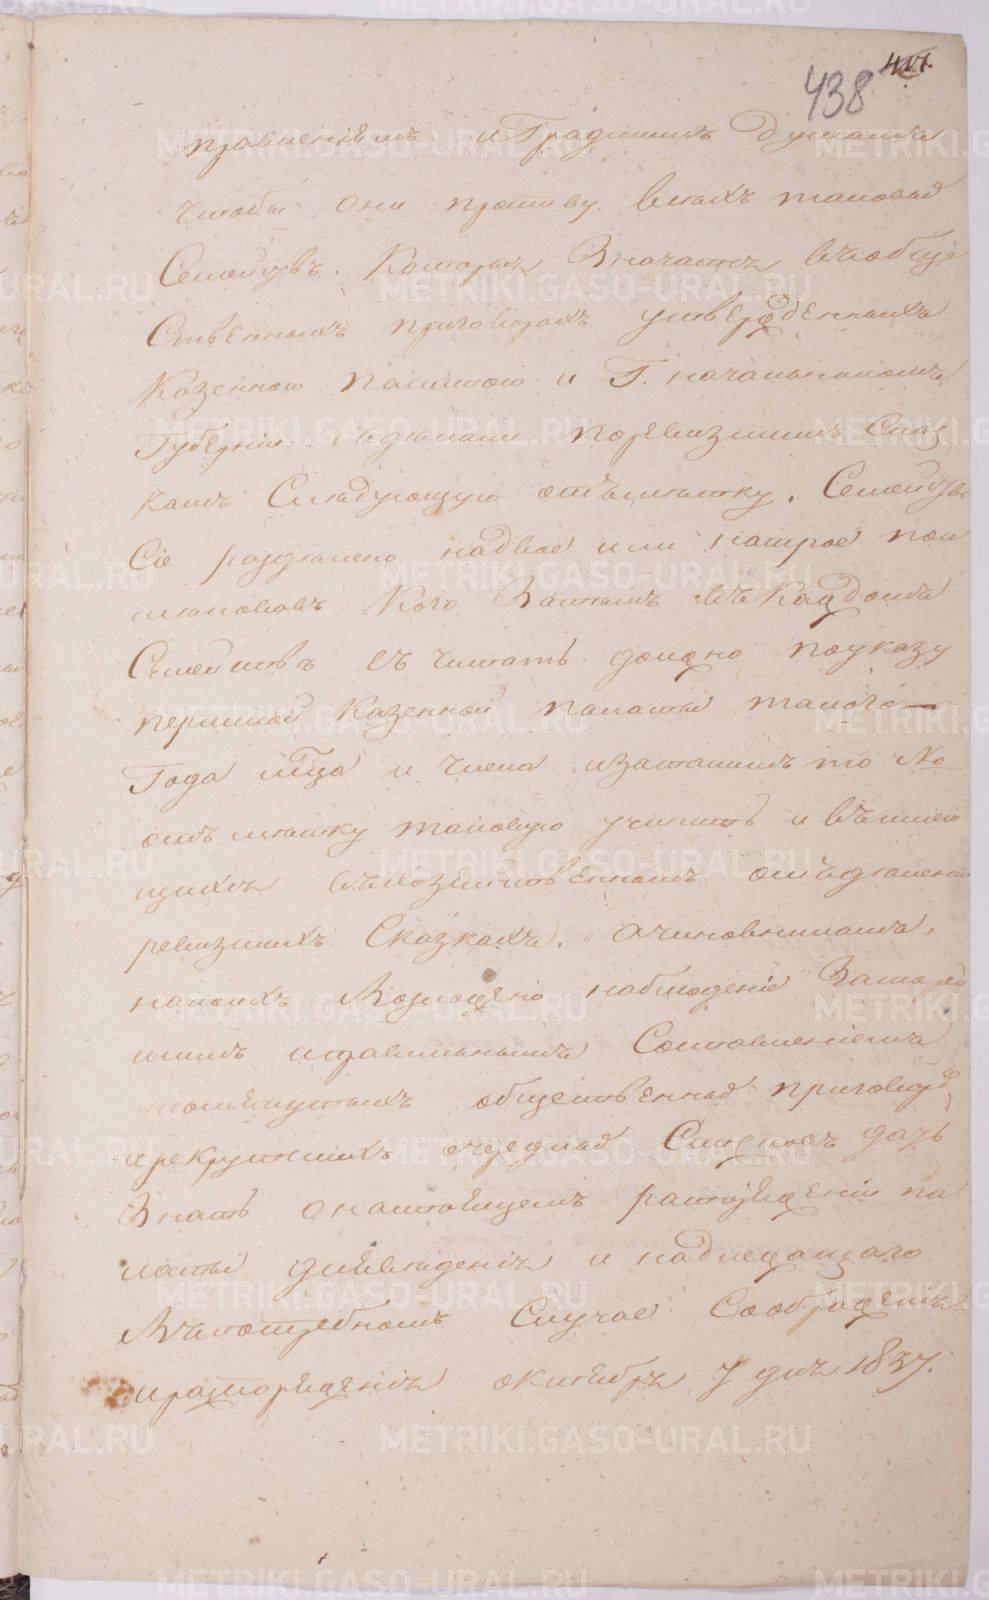 438 401.
правленіямъ и Градскимъ Думамъ
чтобы они противу всѣхъ таковыхъ
Семействъ. Которыя Значатся въ обще
Ственныхъ приговорахъ утвержденныхъ
Казенною палатою и Г. начальникомъ
Губерніи сдѣлали по ревизскимъ Сказ
камъ Слѣдующую отъмѣтку. Семейство
Сіе раздѣлено надвое или натрое пои
мяновавъ Кого Затѣмъ въ Каждомъ
Семействѣ Съчитать должно по указу
пермской Казенной палаты такого
Года м-ца и числа и за таkимъ то №
отъмѣтку таковую учинить и въ имею
щихся въ хозяйственномъ отъдѣленіи
ревизскихъ Сказкахъ. а чиновникамъ,
на коихъ Возложено наблюденіе За скорѣй
шимъ и правильнымъ Составленіемъ
помянутыхъ общественныхъ приговоровъ,
и рекрутскихъ очередныхъ Списковъ дать
Знать о настоящемъ распоряженіи па
латы для свѣденія и надлежащаго
Въ потребномъ Случае Соображенія
и распоряженія октября 7 дня 1837.
METRIKI.GASO-URAL.RU